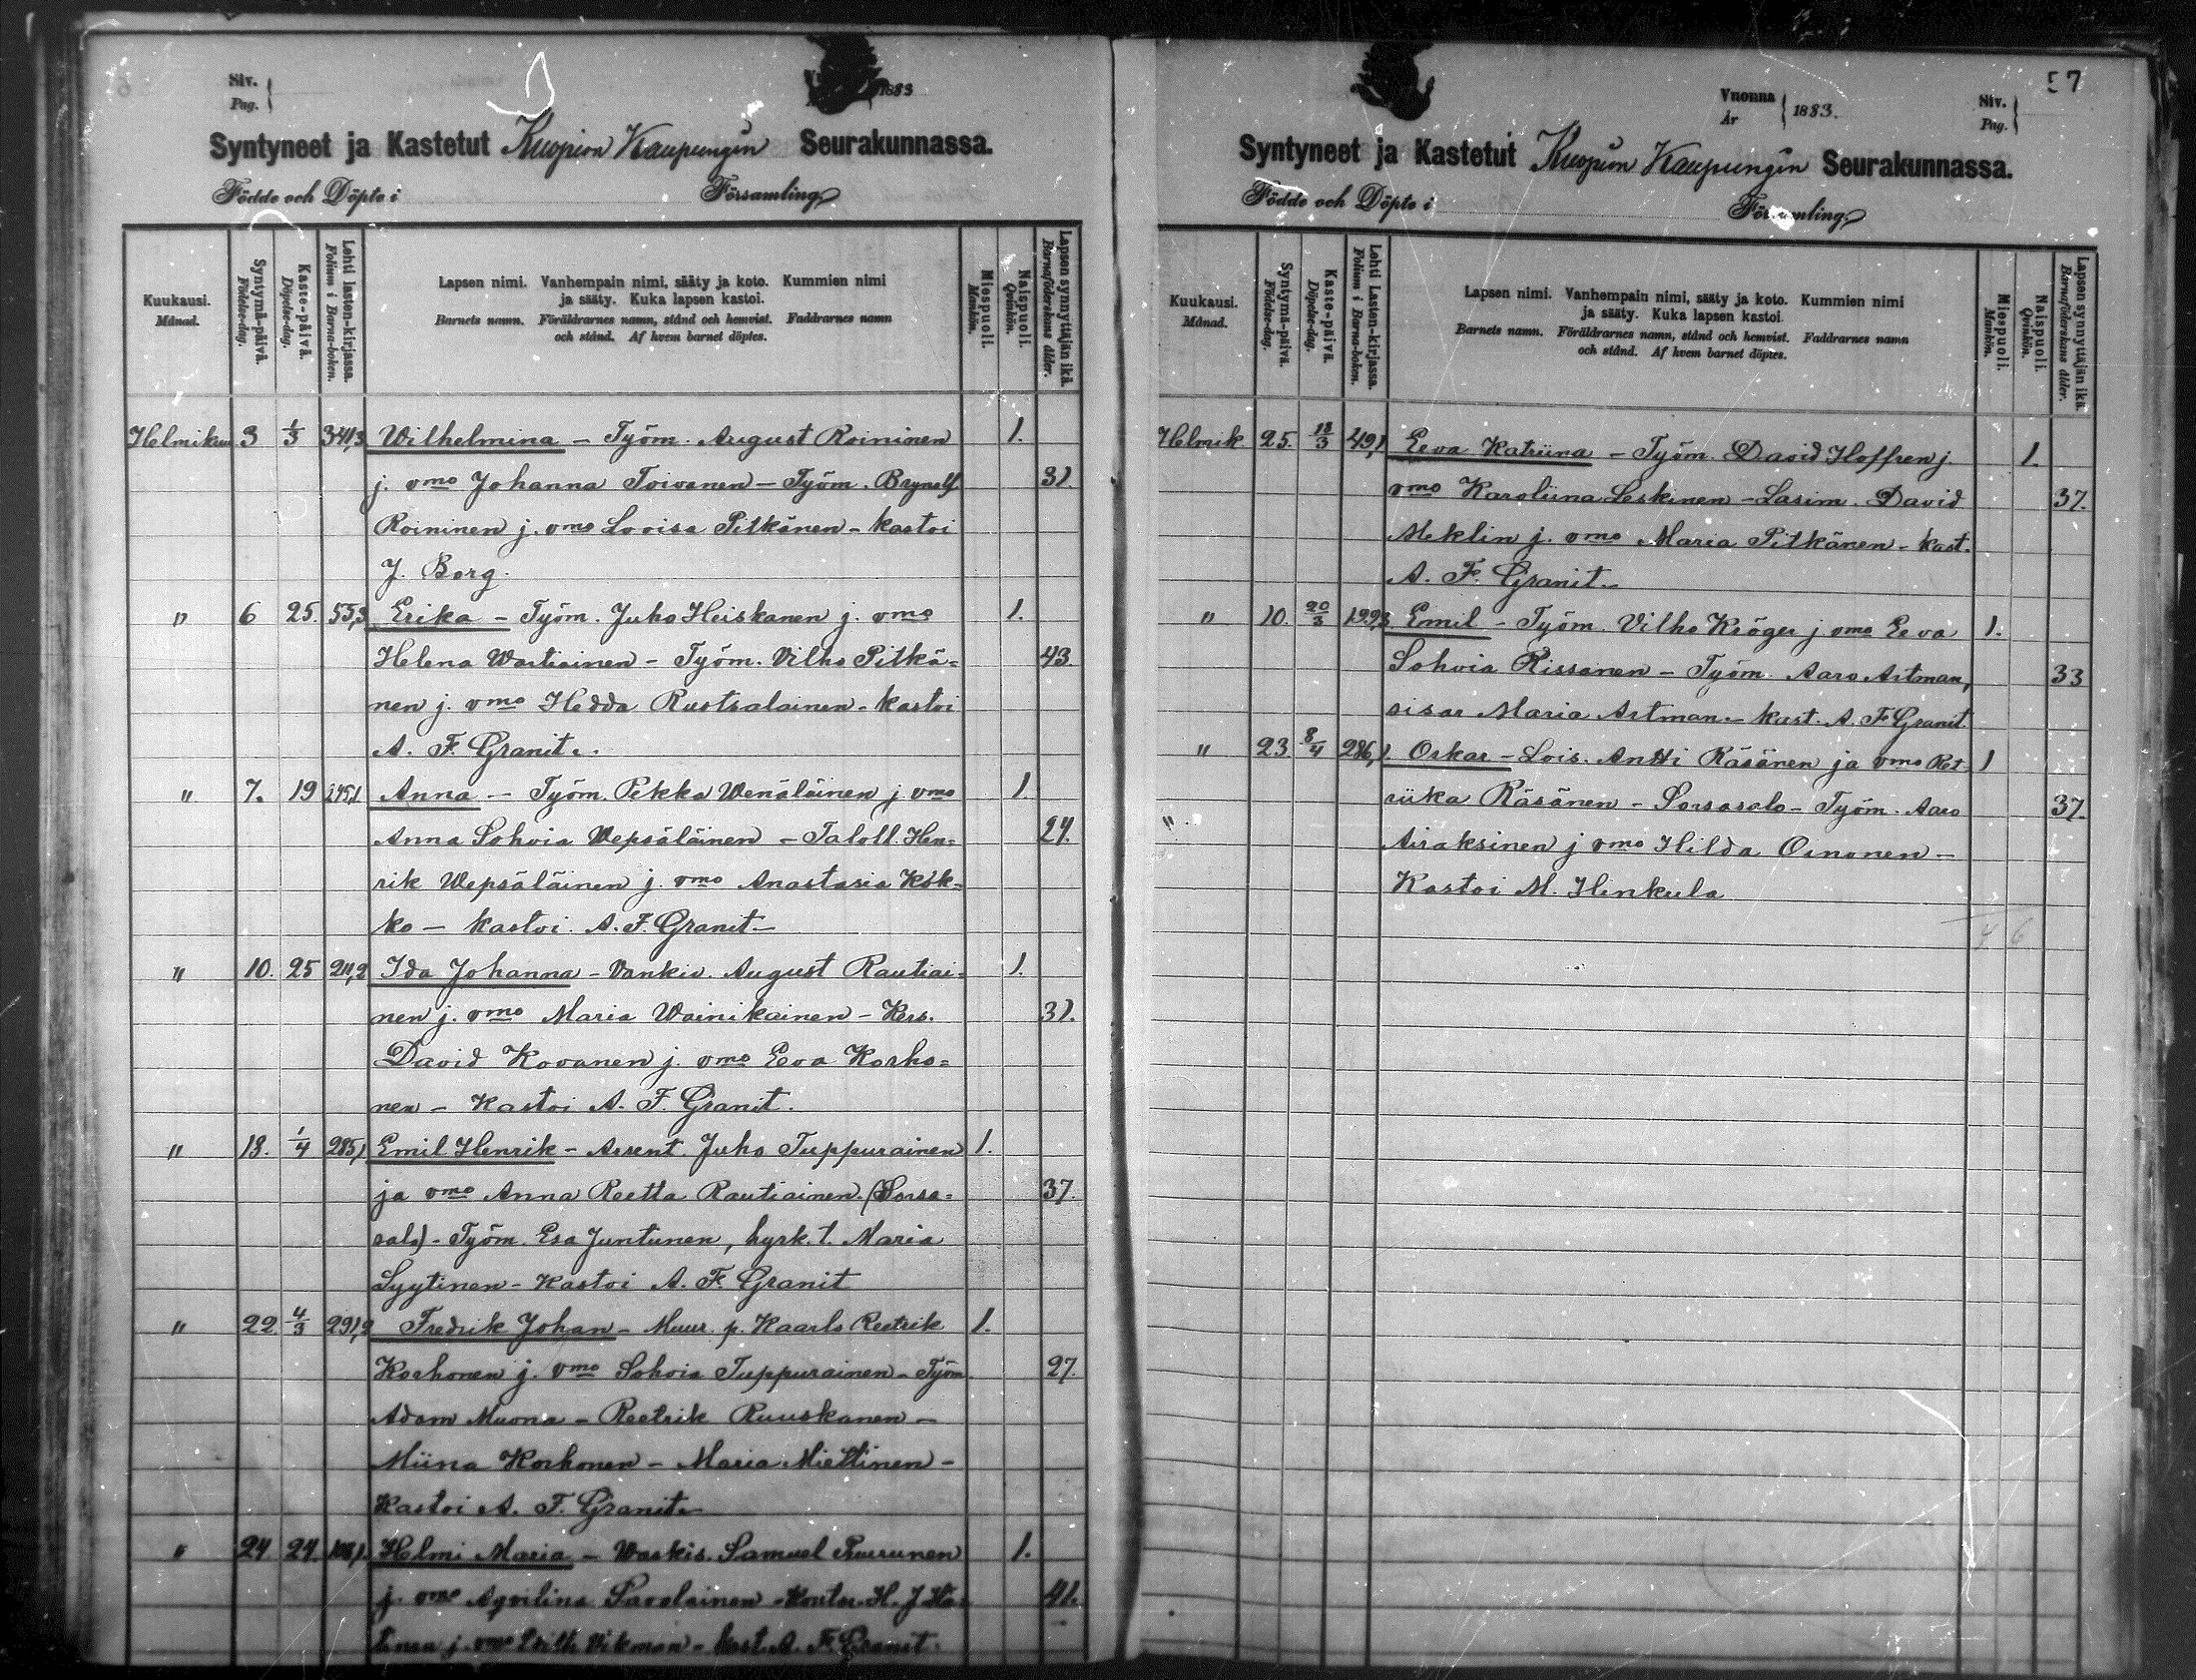 Siv.
Pag.
1883
Syntyneet ja Kastetut Kuopion Kaupungin Seurakunnassa.
Födde och Döpte i Församling
Kuukausi.
Månad.
Syntymä-päivä.
Födelse-dag.
Kaste-päivä.
Döpelse-dag.
Lehti lasten-kirjassa.
Folium i Barna-boken.
Lapsen nimi. Vanhempain nimi, sääty ja koto. Kummien nimi
ja sääty. Kuka lapsen kastoi.
Barnets namn. Föräldrarnes namn, stånd och hemvist. Faddrarnes namn
och stånd. Af hvem barnet döptes.
Miespuoli.
Mankön.
Naispuoli.
Qvinkön.
Lapsen synnyttäjän ikä.
Barnaföderskans ålder.
Helmikuu 3 1/3 341,3 Wilhelmina - Työm. August Roininen 1.
j. vmo Johanna Toivanen - Työm. Brynolf 31.
Roininen j. vmo Lovisa Pitkänen - kastoi
J. Borg.
" 6 25. 55,3 Erika - Työm. Juho Heiskanen j. vmo 1.
Helena Wartiainen - Työm. Vilho Pitkä= 43.
nen j. vmo Hedda Rustsalainen - kastoi
A. F. Granit.
" 7. 19 245,1 Anna - Työm. Pekka Wenäläinen j. vmo 1.
Anna Sohvia Wepsäläinen - Taloll. Hen= 24.
rik Wepsäläinen j. vmo Anastasia Kok=
ko - kastoi. A. F. Granit -
" 10. 25 211,2 Ida Johanna - Vankiv. August Rautiai= 1.
nen j. vmo Maria Wainikainen - Kers. 31.
David Kovanen j. vmo Eeva Korho=
nen - Kastoi A. F. Granit.
" 13. 1/4 285,1 Emil Henrik - Arrent. Juho Tuppurainen 1.
ja vmo Anna Reetta Rautiainen. (Sorsa= 37.
salo) - Työm. Esa Juntunen, hyrk. t. Maria
Lyytinen - Kastoi A. F. Granit
" 22. 4/3 291,2 Fredrik Johan - Muur. p. Kaarlo Reetrik 1.
Korhonen j. vmo Sohvia Tuppurainen - Työm. 27.
Adam Muona - Reetrik Ruuskanen -
Miina Korhonen - Maria Miettinen -
Kastoi A. F. Granit -
" 24. 24. Helmi Maria - Samuel Puurunen 1.
j. vmo Aqvilina Savolainen - H. J. 41.
j. vmo Wikman - kast. A. F. Granit.
57
Vuonna
År 1883.
Siv.
Pag.
Syntyneet ja Kastetut Kuopion Kaupungin Seurakunnassa.
Födde och Döpte i Församling
Kuukausi.
Månad.
Syntymä-päivä.
Födelse-dag.
Kaste-päivä.
Döpelse-dag.
Lehti Lasten-kirjassa.
Folium i Barna-boken.
Lapsen nimi. Vanhempain nimi, sääty ja koto. Kummien nimi
ja sääty. Kuka lapsen kastoi.
Barnets namn. Föräldrarnes namn, stånd och hemvist. Faddrarnes namn
och stånd. Af hvem barnet döptes.
Miespuoli.
Mankön.
Naispuoli.
Qvinkön.
Lapsen synnyttäjän ikä.
Barnaföderskans ålder.
Helmik. 25. 18/3 49,1 Eeva Katriina - Työm. David Hoffren j. 1.
vmo Karoliina Leskinen - Lasim. David 37.
Meklin j. vmo Maria Pitkänen - kast.
A. F. Granit -
" 10. 20/3 199,3 Emil - Työm. Vilho Kröger j vmo Eeva 1.
Sohvia Rissanen - Työm. Aaro Artman, 33
sisar Maria Artman - kast. A. F. Granit.
" 23 8/4 286,1. Oskar - Lois. Antti Räsänen ja vmo Ret 1
riika Räsänen - Sorsasalo - Työm. Aaro 37.
Airaksinen j vmo Hilda Oinonen -
Kastoi M. Hinkula